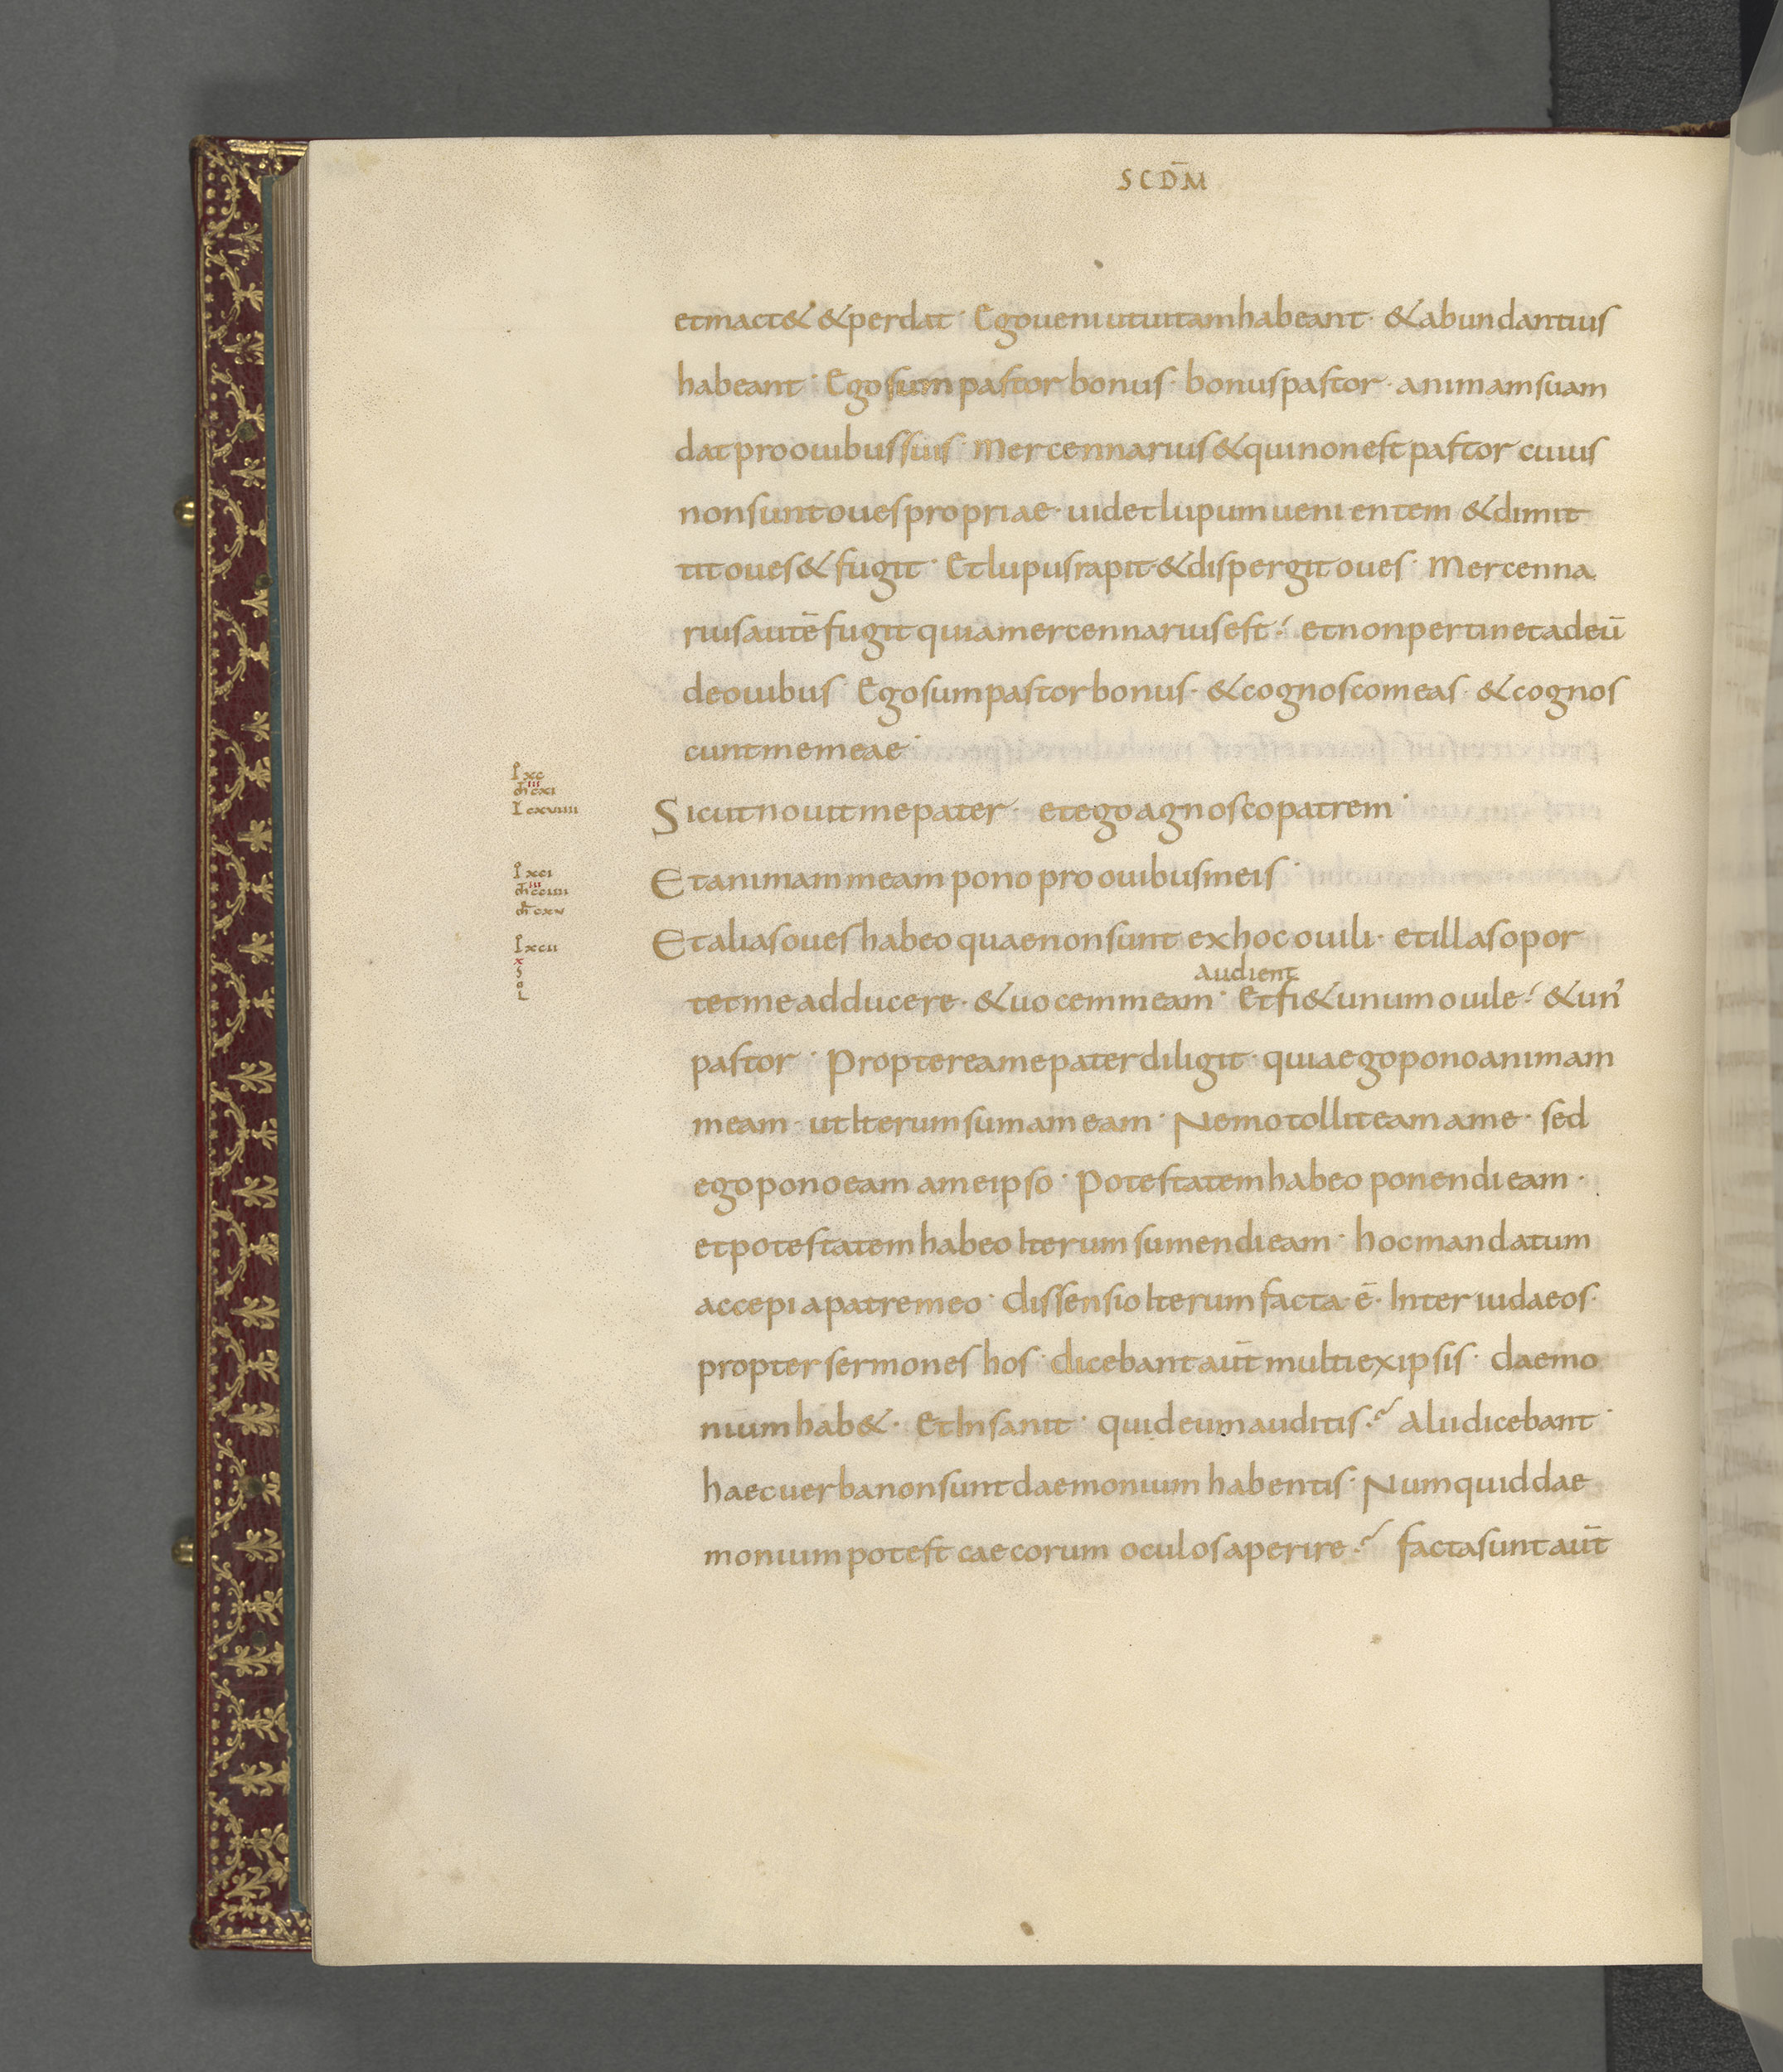 SCD̄M
et mact& & perdat · Ego ueni ut uitam habeant · & abundantius
habeant · Ego sum pastor bonus · bonus pastor · animam suam
dat pro ouibus suis · Mercennarius & qui non est pastor cuius
non sunt oues propriae · uidet lupum uenientem & dimit
tit oues & fugit · Et lupus rapit & dispergit oues · Mercenna
rius autē fugit quia mercennarius est · et non pertinet ad eū
de ouibus · Ego sum pastor bonus · & cognosco meas · & cognos
cunt me meae ·
I xc
iii
M cxi
L cxviiii
Sicut nouit me pater · et ego agnosco patrem ·
I xci
iiii
M cciiii
M cxv
Et animam meam pono pro ouibus meis ·
I xcii
x
S
o
L
Et alias oues habeo quae non sunt ex hoc ouili · et illas opor
audient
tet me adducere · & uocem meam · Et fi& unum ouile · & un'
pastor · Propterea me pater diligit · quia ego pono animam
meam · ut Iterum sumam eam · Nemo tollit eam a me · sed
ego pono eam a me ipso · Potestatem habeo ponendi eam ·
et potestatem habeo Iterum sumendi eam · hoc mandatum
accepi a patre meo · dissensio Iterum facta ē · Inter iudaeos ·
propter sermones hos · dicebant aūt multi ex ipsis · daemo
nium hab& · Et Insanit · quid eum auditis ? Alii dicebant ·
haec uerba non sunt daemonium habentis · Numquid dae
monium potest caecorum oculos aperire ? facta sunt aūt